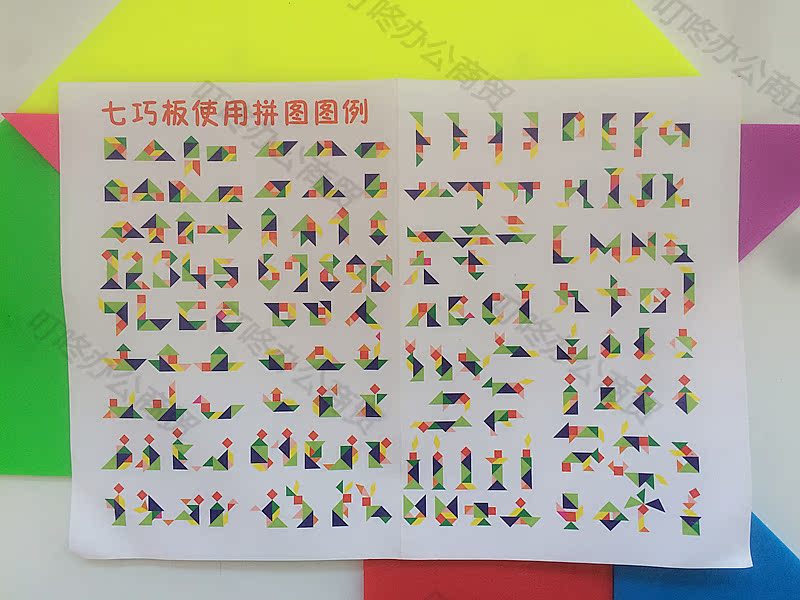 叮咚办公商贸
叮咚办公商贸
七巧板使用拼图图例
叮咚办公商贸
叮咚办公商贸
叮咚办公商贸
叮咚办公商贸
叮咚办公商贸